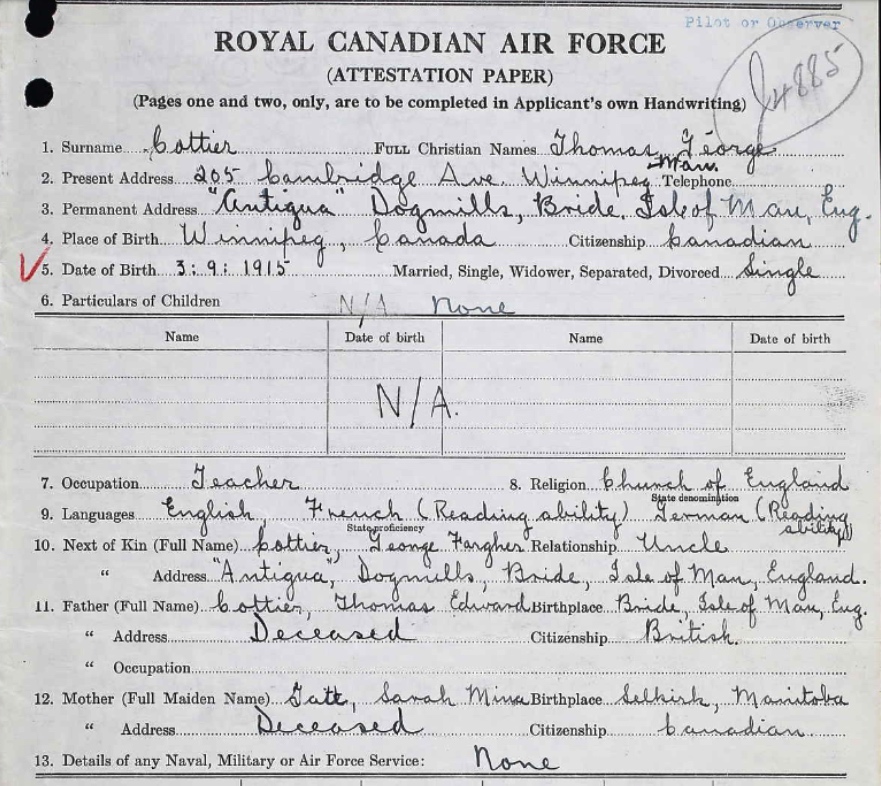 Pilot or Observer
J4885
ROYAL CANADIAN AIR FORCE
(ATTESTATION PAPER)
(Pages one and two, only, are to be completed in Applicant's own Handwriting)
1. Surname Cottier Full Christian Names Thomas George
2. Present Address 205 Cambridge Ave. Winnipeg Man. Telephone
3. Permanent Address "Antigua" Dogmills, Bride, Isle of Man, Eng.
4. Place of Birth Winnipeg, Canada Citizenship Canadian
5. Date of Birth 3:9:1915 Married, Single, Widower, Separated, Divorced Single
6. Particulars of Children N/A None
Name Date of birth Name Date of birth
N/A.
7. Occupation Teacher 8. Religion Church of England
State denomination
9. Languages English, French (Reading ability) German (Reading ability)
State proficiency
10. Next of Kin (Full Name) Cottier, George Fargher Relationship Uncle
" Address "Antigua", Dogmills, Bride, Isle of Man, England.
11. Father (Full Name) Cottier, Thomas Edward Birthplace Bride, Isle of Man, Eng.
" Address Deceased Citizenship British.
" Occupation
12. Mother (Full Maiden Name) Tait, Sarah Mina Birthplace Selkirk, Manitoba
" Address Deceased Citizenship Canadian
13. Details of any Naval, Military or Air Force Service: None